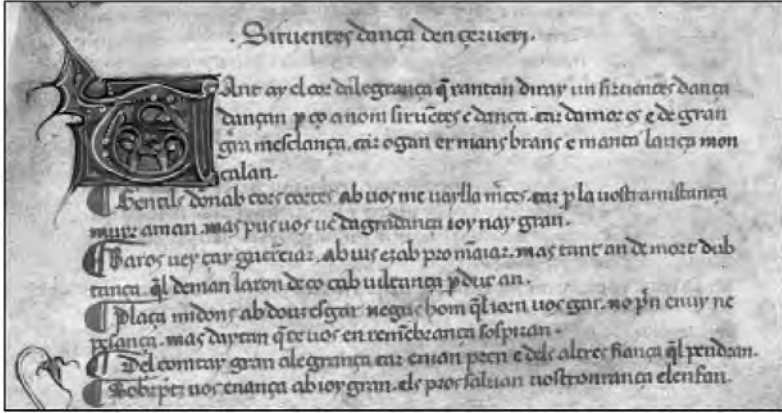 · Siruentes dança den çerueri ·
Tant ay el cor dalegrança q̄ tantan diray un siruentes dança
dançan p ço a nom siruētes e dança . car damor es e de gran
gra mesclança . car ogan er mans brans e manta lança mon
calan .
Gentils dona b cors cortes ab uos me uaylla m̄ces . car p la uostramistança
muyr aman . mas pus uos ue dagradança ioy nay gran .
Baros uey çay guerreiar . ab us ez ab pro māiar . mas tant an de mort dub
tança . q̄l deman laron de co cab uiltança p duc an .
Plaça midons ab douz esgar negus hom q̄l ioen uos gar . no p̄n enuy ne
pesança . mas daytan q̄ te uos en remēbrança sospiran .
Del comtay gran alegrança car enian pren e dels altres fiança q̄l pendran .
Sobrepretz uos enança ab ioy gran . els pros saluan uostronrança e lenfan .